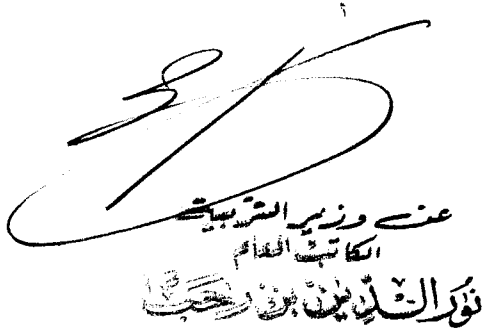 عن وزير التربية
الكاتب العام
نور الدين بن رحب